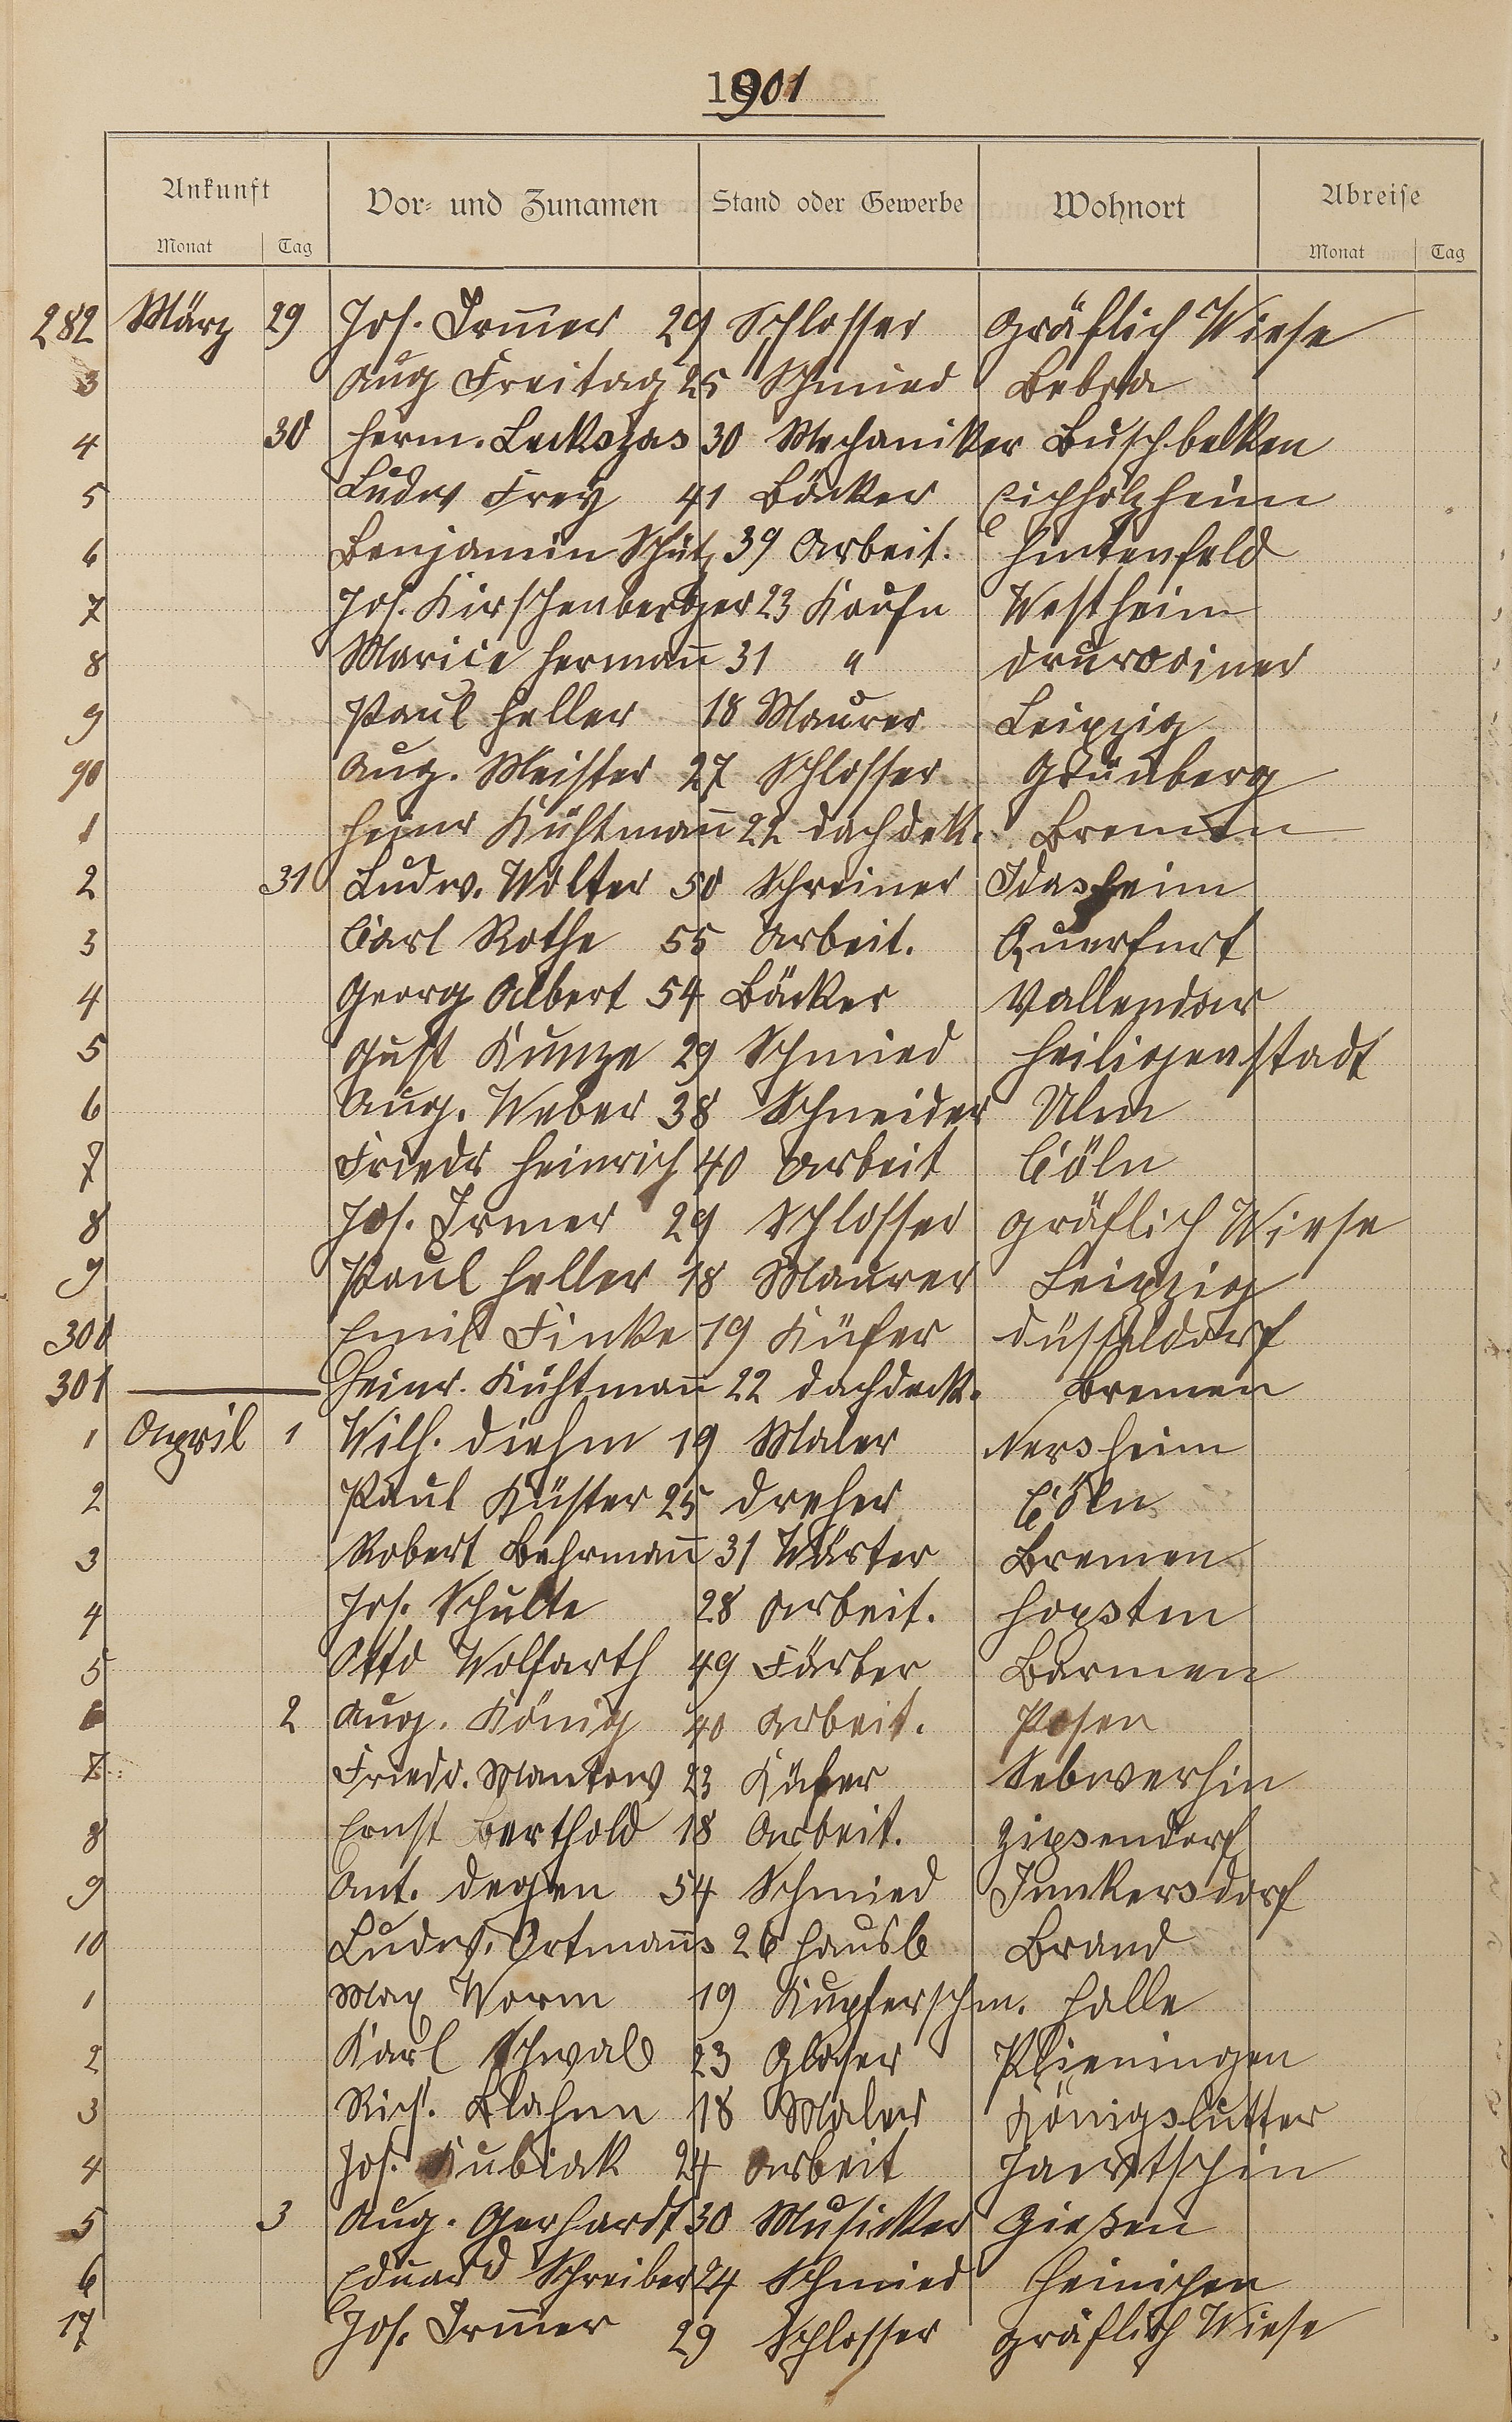 1901
Ankunft Vor- und Zunamen Stand oder Gewerbe Wohnort Abreise
Monat Tag Monat Tag
282 März 29 Jos. Irm̄er 29 Schlosser Gräflich Wiese
3 Aug Freitag 25 Schmied Bebra
4 30 Herm. Leckszas 30 Mechaniker Buschbelken
5 Ludw Frey 41 Bäcker Eichholzheim
6 Benjamin Schütz 39 Arbeit. Hintenfeld
7 Jos. Kirschenberger 23 Kaufn Westheim
8 Maricie Herman̄ 31 "
9 Paul Heller 18 Maurer Leipzig
90 Aug. Meister 27 Schlosser Grünberg
1 Heinr Kühtman̄ 22 Dachdek. Bremen
2 31 Ludw. Wolter 50 Schreiner Idasheim
3 Carl Rothe 55 Arbeit. Querfurt
4 Georg Albert 54 Bäcker Vallendar
5 Gust Kunze 29 Schmied Heiligenstadt
6 Aug. Weber 38 Schneider Ulm
7 Friedr Heinrich 40 Arbeit Cöln
8 Jos. Irmer 29 Schlosser Gräflich Wiese
9 Paul Heller 18 Maurer Leipzig
300 Emil Finke 19 Küfer Düsseldorf
301 Heinr. Kühtman̄ 22 Dachdeck. Bremen
1 April 1 Wilh. Diehm 19 Maler Nersheim
2 Paul Küster 25 Dreher Cöln
3 Robert Behrman̄ 31 Wärter Bremen
4 Jos. Schulte 28 Arbeit. Hopsten
5 Otto Wolfarth 49 Färber Barmen
6 2 Aug. König 40 Arbeit. Posen
7 Friedr. Mantow 23 Küfer
8 Ernst Berthold 18 Arbeit. Zipsendorf
9 Ant. Degen 54 Schmied Junkersdorf
10 Ludw. Ortman̄s 26 Hausb Brand
1 Max Worm 19 Kupferschm. Halle
2 Karl Schwab 23 Glaser Plieningen
3 Rich. Blahm 18 Maler Königslutter
4 Jos. Kubiak 24 Arbeit Jarotschin
5 3 Aug. Gerhardt 30 Musicker Gießen
6 Eduard Schreiber 24 Schmied Heinichen
17 Jos. Irm̄er 29 Schlosser Gräflich Wiese